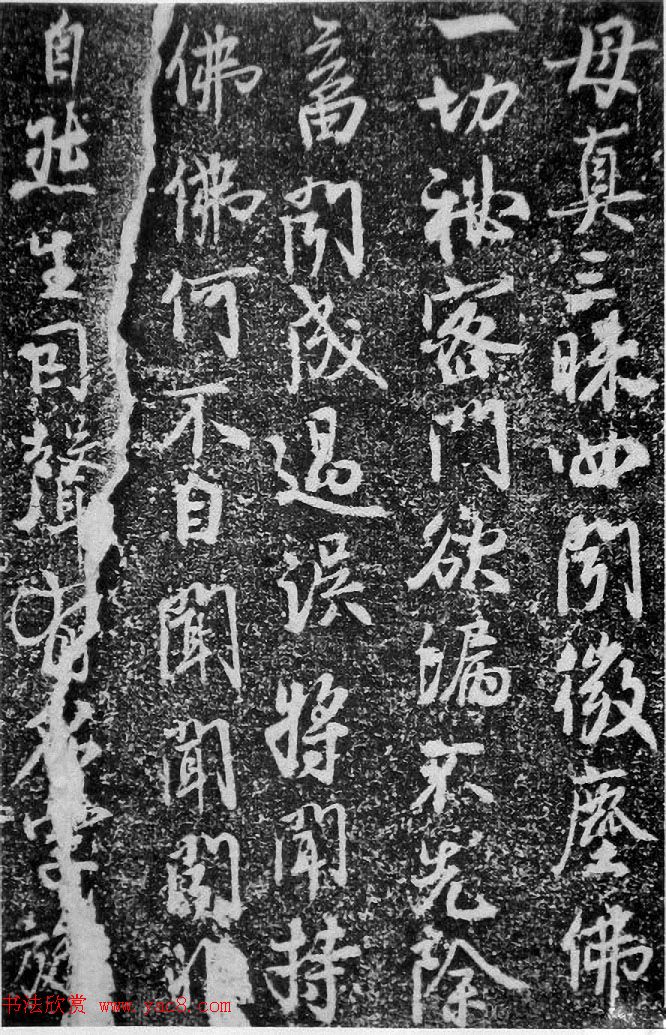 母真三昧汝聞微塵佛
一切祕密門欲漏不先除
畜聞成過誤將聞持
佛佛何不自聞聞聞非
自然生因聲有名字旋
书法欣赏 www.yac8.com